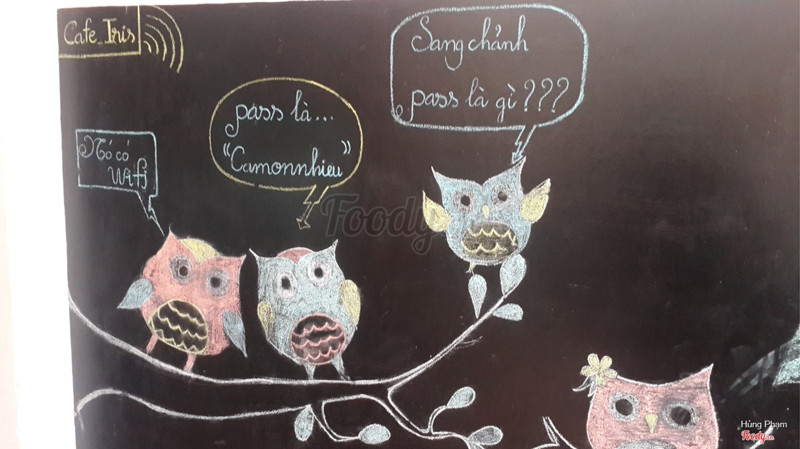 Cafe_Iris
Nó có
Wifi
pass là...
"Camonnhieu"
Sang chảnh
pass là gì???
Foody
Hùng Phạm
Foody.vn